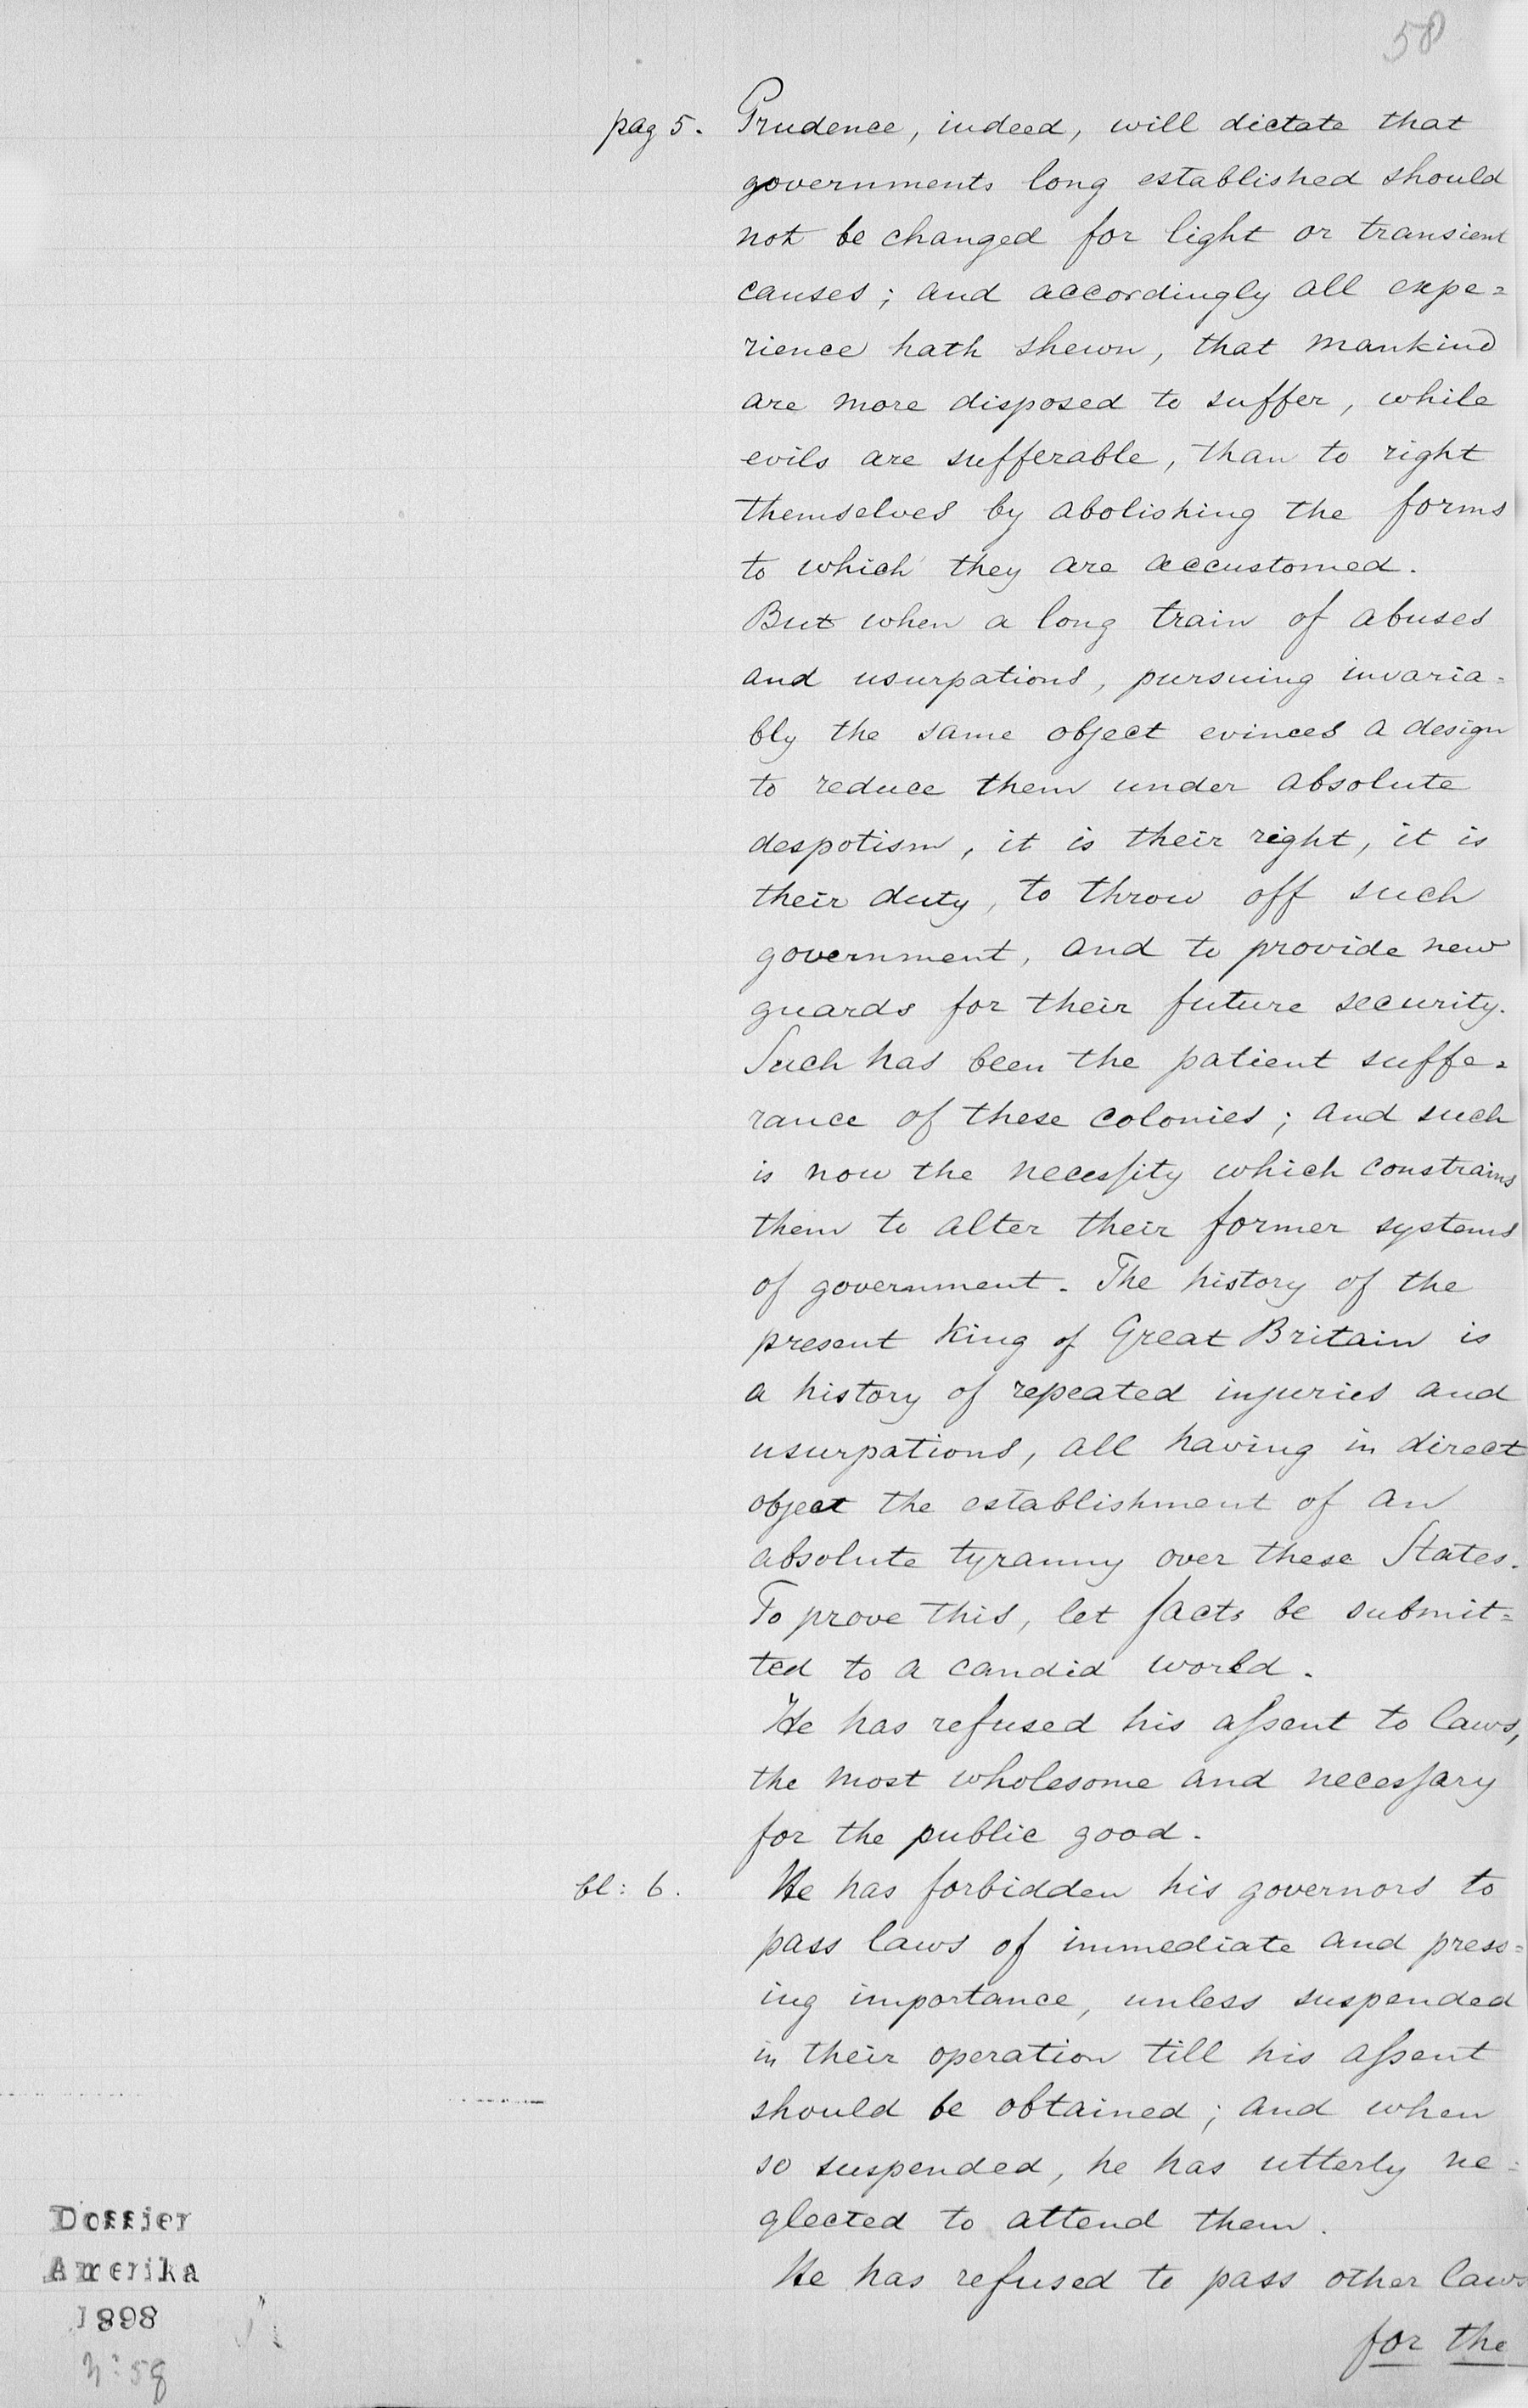 58
pag 5. Prudence, indeed, will dictate that
governments long established should
not be changed for light or transient
causes; and accordingly all expe=
rience hath shewn, that mankind
are more disposed to suffer, while
evils are sufferable, than to right
themselves by abolishing the forms
to which they are accustomed.
But when a long train of abuses
and usurpations, pursuing invaria=
bly the same object evinces a design
to reduce them under absolute
despotism, it is their right, it is
their duty, to throw off such
government, and to provide new
guards for their future security.
Such has been the patient suffe=
rance of these colonies; and such
is now the necesſity which constrains
them to alter their former systems
of government. The history of the
present King of Great Britain is
a history of repeated injuries and
usurpations, all having in direct
object the establishment of an
absolute tyranny over these States.
To prove this, let facts be submit=
ted to a candid world.
He has refused his aſsent to laws,
the most wholesome and necesſary
for the public good.
bl: 6. He has forbidden his governors to
pass laws of immediate and press=
ing importance, unless suspended
in their operation till his aſsent
should be obtained; and when
so suspended, he has utterly ne=
glected to attend them.
He has refused to pass other laws
for the
Dossier
Amerika
1898
N: 58